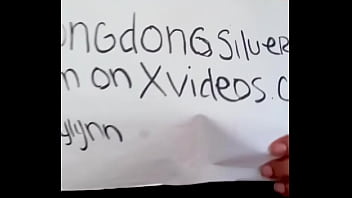 ngdongSilver
n on Xvideos.c
ylynn